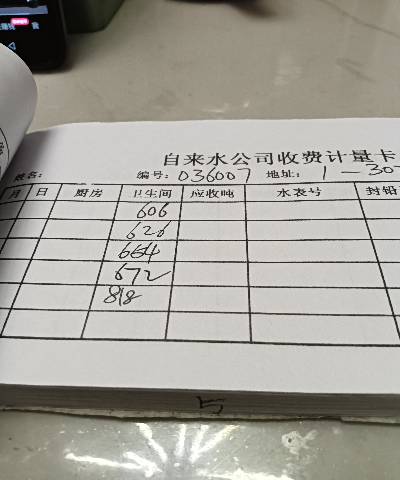 自来水公司收费计量卡
姓名: 编号: 036007 地址: 1-307
月 日 厨房 卫生间 应收吨 水表号 封铅
606
626
664
672
818
5